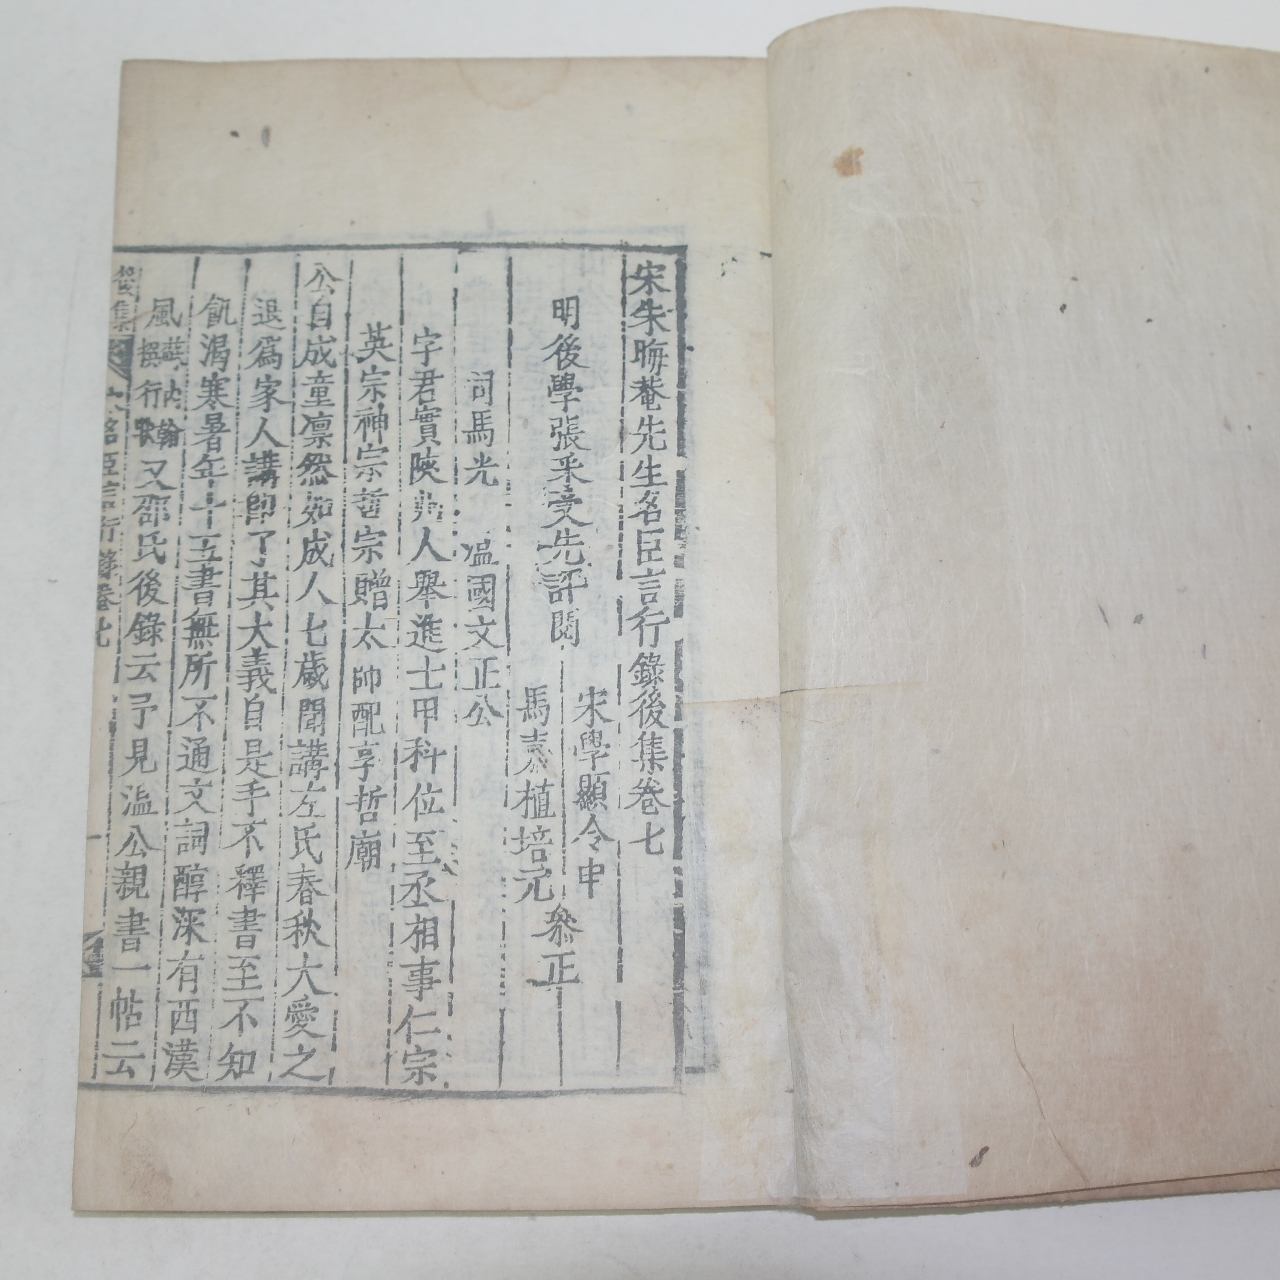 宋朱晦菴先生名臣言行錄後集卷七
明後學張采受先評閱
宋學顯令申
馬嘉植培元
叅正
司馬光　温國文正公
字君實陝州人舉進士甲科位至丞相事仁宗
英宗神宗哲宗贈太師配享哲廟
公自成童凛然如成人七歲聞講左氏春秋大愛之
退爲家人講卽了其大義自是手不釋書至不知
飢渴寒暑年十五書無所不通文詞醇深有西漢
風蘇內翰撰行狀又邵氏後錄云予見溫公親書一帖云
後集　名臣言行錄卷七　一